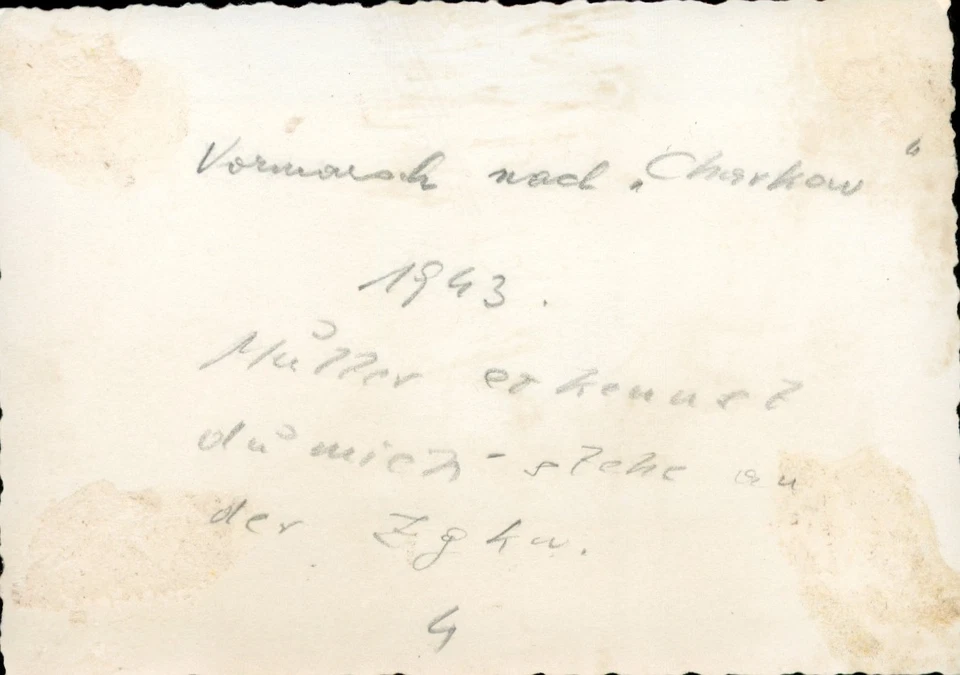 Vormarsch nach „Charkow“
1943.
Mutter erkennst
du mich - stehe an
der Zgkw.
4